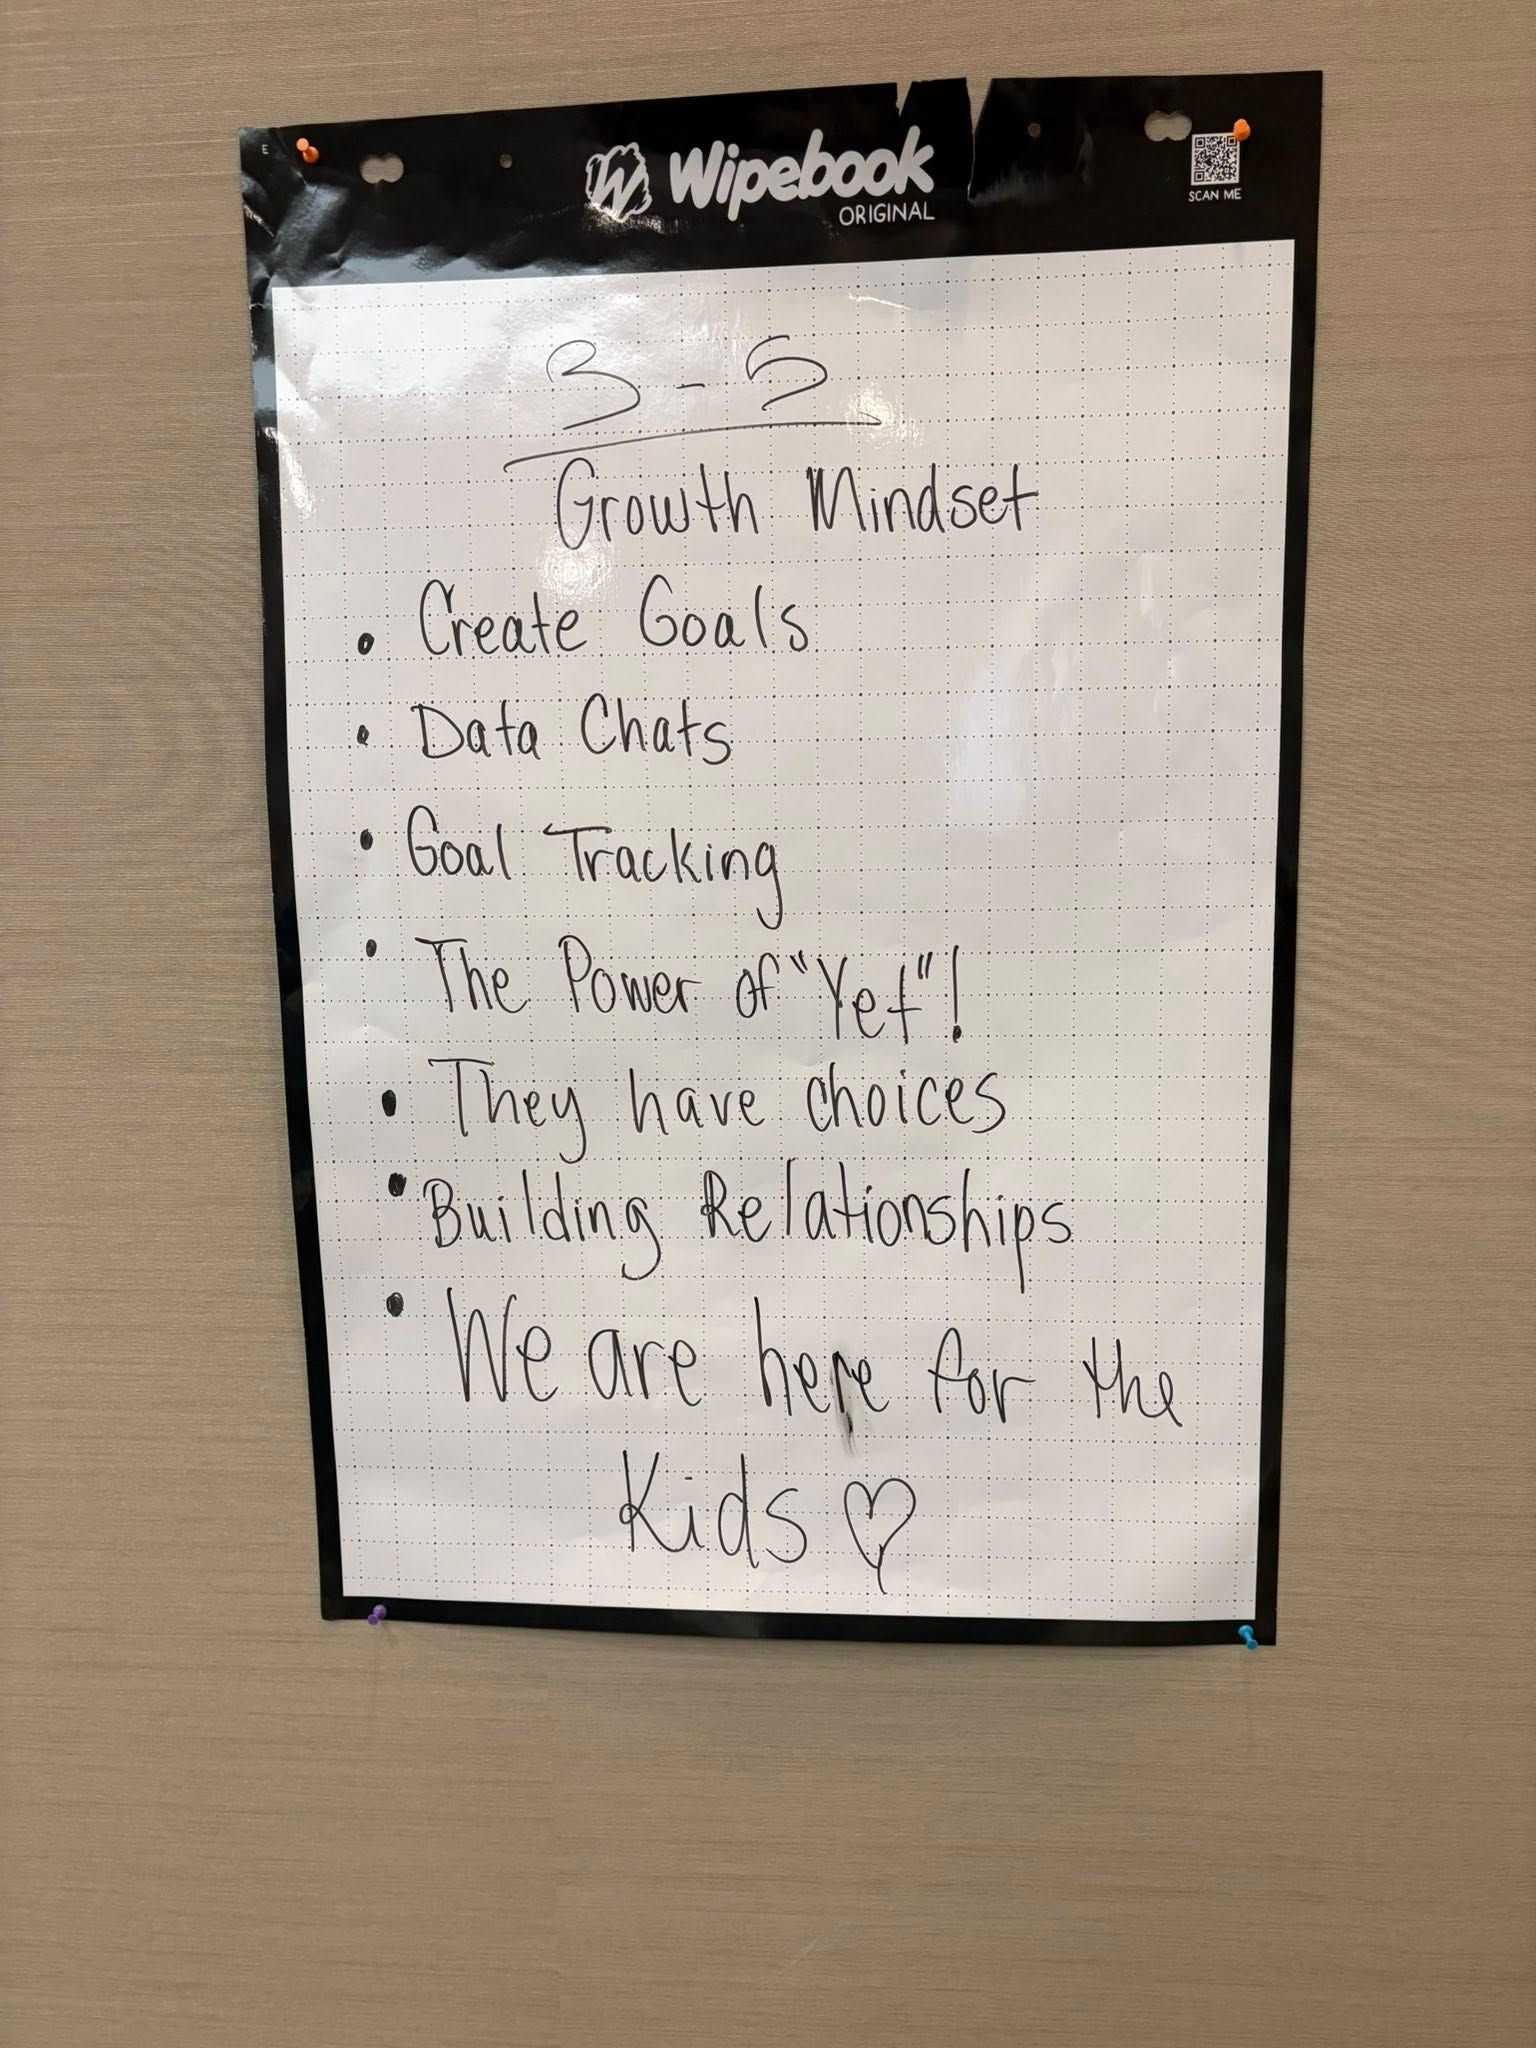 E
Wipebook
ORIGINAL
SCAN ME
3 - 5
Growth Mindset
• Create Goals
• Data Chats
• Goal Tracking
• The Power of "Yet"!
• They have choices
• Building Relationships
• We are here for the
Kids ♡